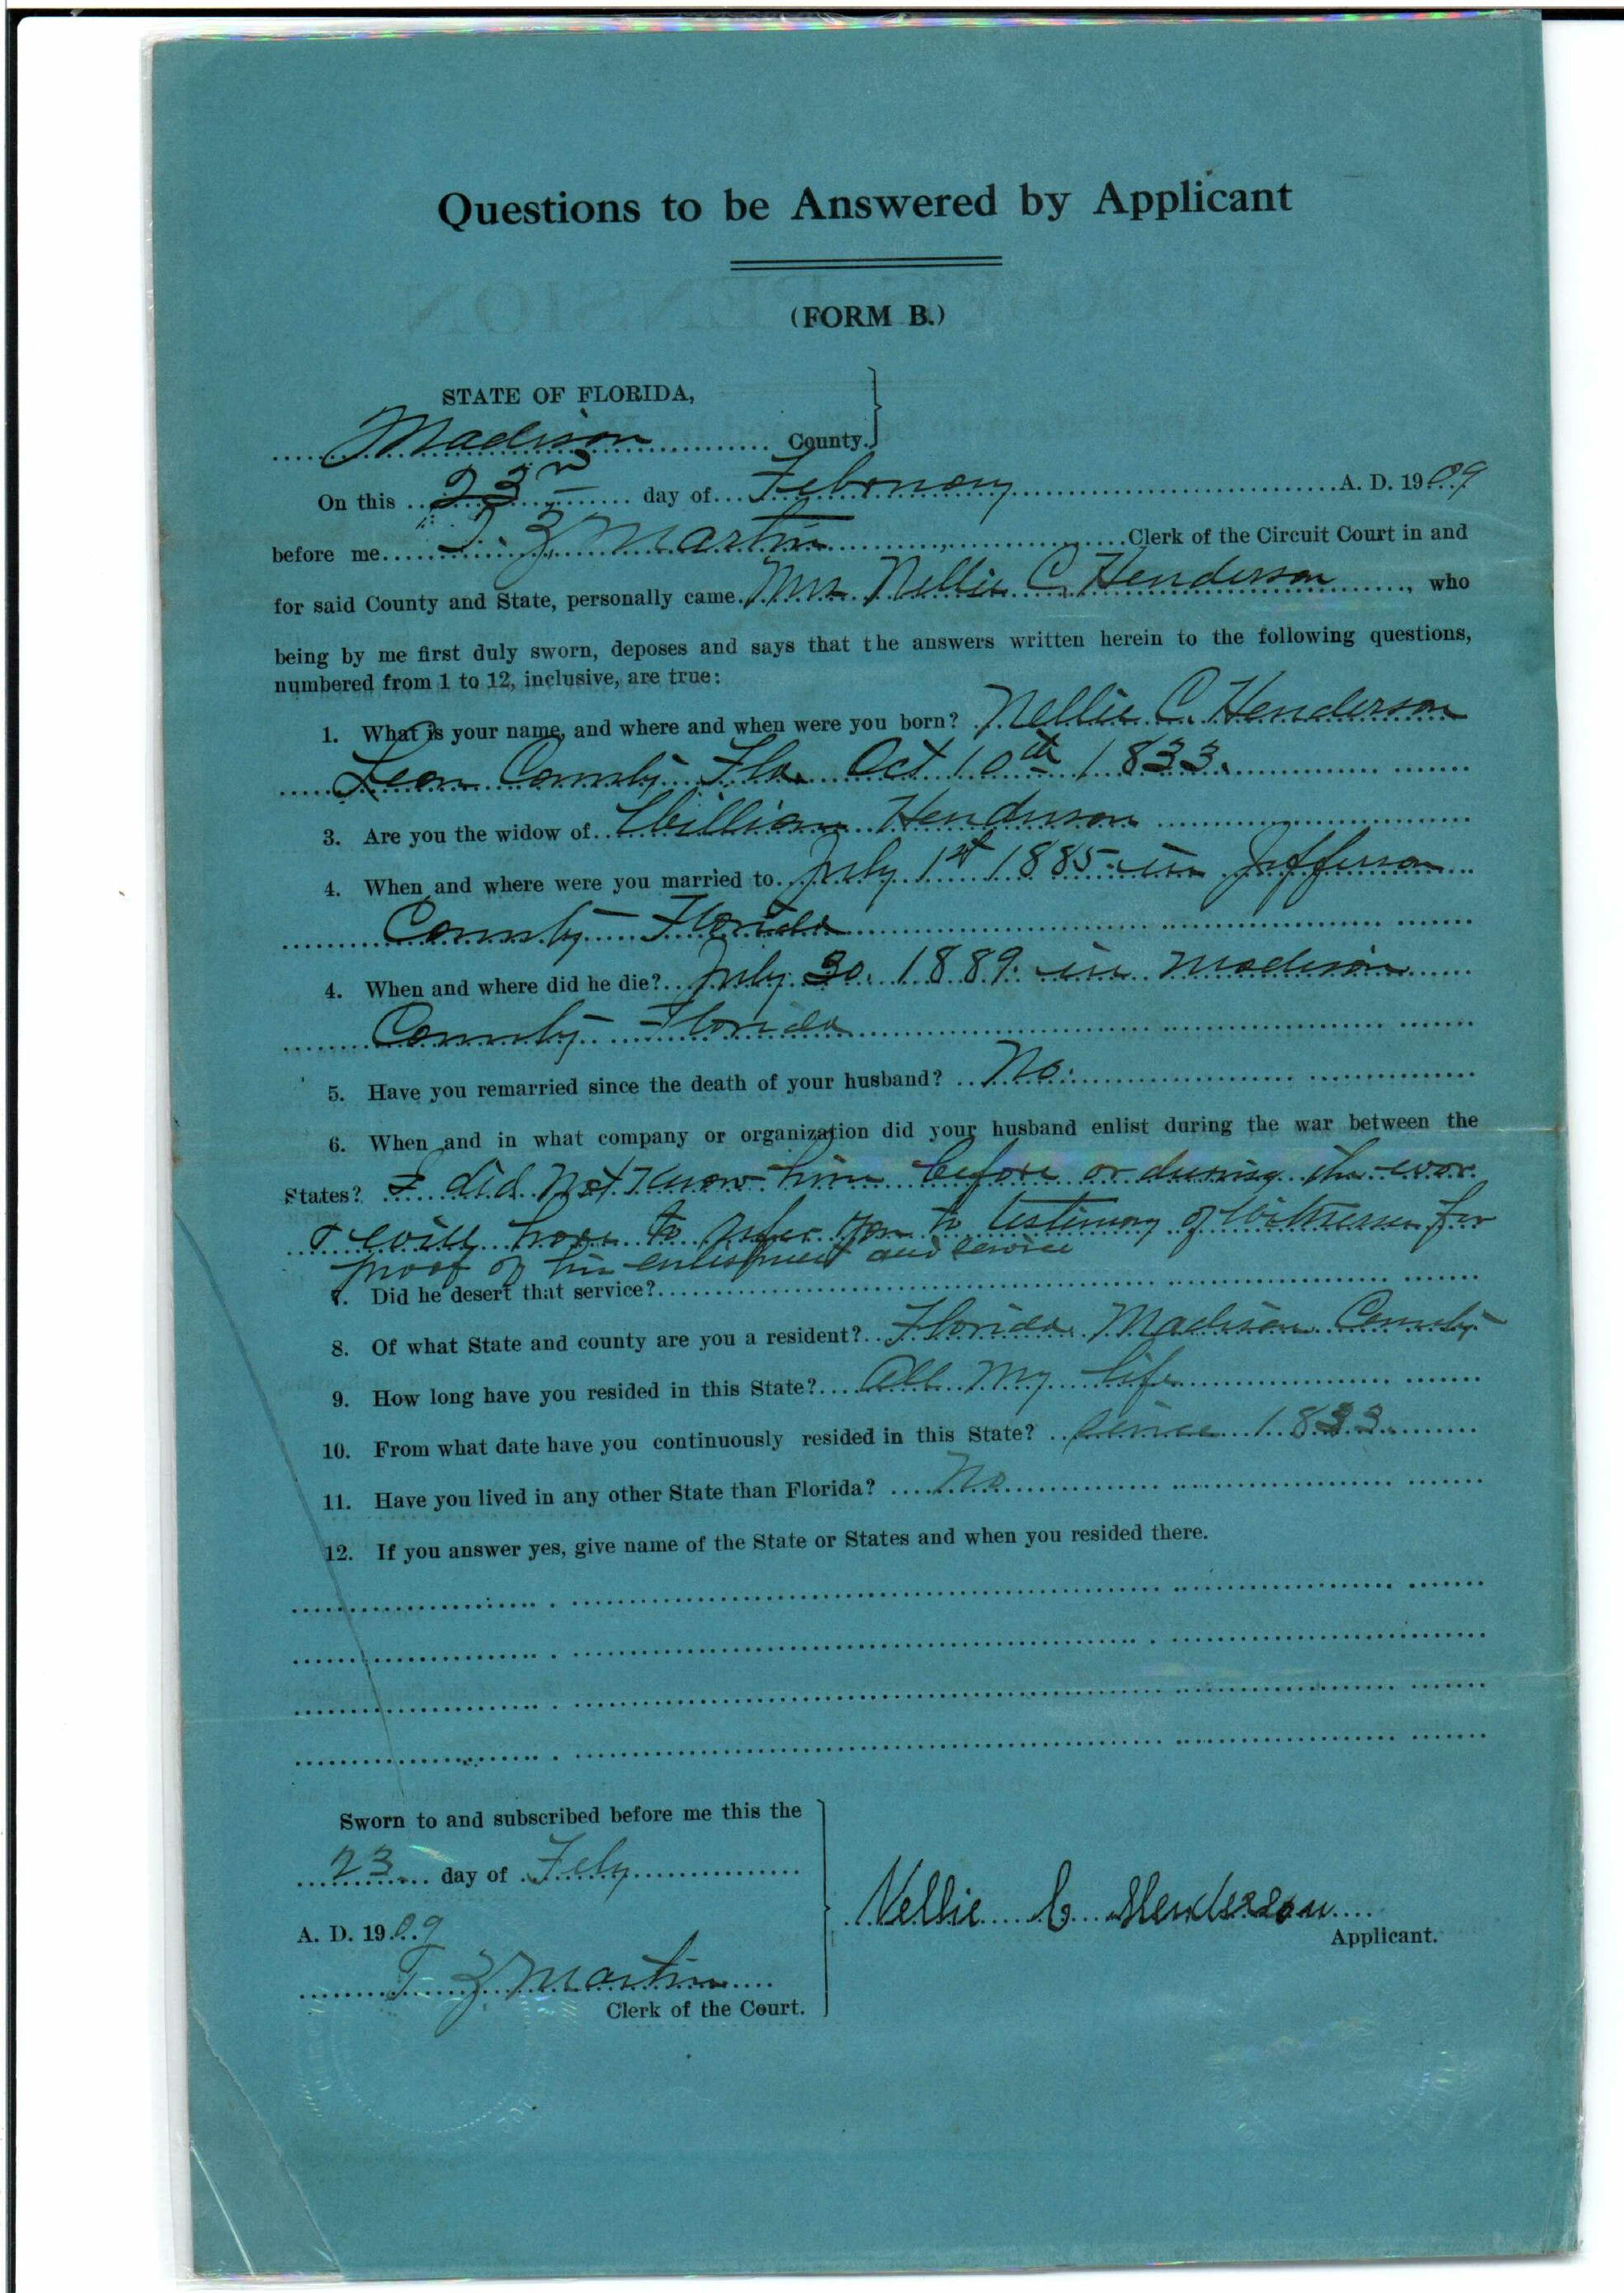 Questions to be Answered by Applicant
(FORM B.)
STATE OF FLORIDA,
Madison County.
On this 23rd day of February A. D. 1909
before me T. Z. Martin Clerk of the Circuit Court in and
for said County and State, personally came Mrs Nellie C. Henderson, who
being by me first duly sworn, deposes and says that the answers written herein to the following questions,
numbered from 1 to 12, inclusive, are true:
1. What is your name, and where and when were you born? Nellie C. Henderson
Leon County Fla. Oct 10th 1833.
3. Are you the widow of William Henderson
4. When and where were you married to July 1st 1885 in Jefferson
County Florida
4. When and where did he die? July 30. 1889. in Madison
County Florida
5. Have you remarried since the death of your husband? No.
6. When and in what company or organization did your husband enlist during the war between the
States? I did not know him before or during the war
I will have to refer you to testimony of witnesses for
proof of his enlistment and service
7. Did he desert that service?
8. Of what State and county are you a resident? Florida Madison County
9. How long have you resided in this State? All my life
10. From what date have you continuously resided in this State? Since 1833
11. Have you lived in any other State than Florida? No
12. If you answer yes, give name of the State or States and when you resided there.
Sworn to and subscribed before me this the
23 day of Feby
A. D. 1909
T Z Martin
Clerk of the Court.
Nellie C. Henderson
Applicant.